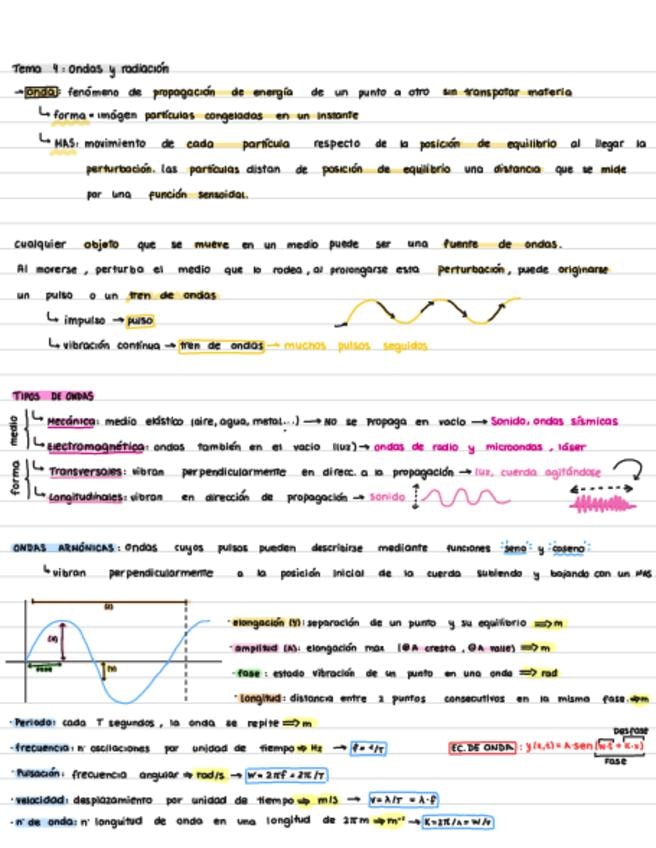 Tema 4: Ondas y radiación
→ onda: fenómeno de propagación de energía de un punto a otro sin transpotar materia
↳ forma = imágen partículas congeladas en un instante
↳ MAS: movimiento de cada partícula respecto de la posición de equilibrio al llegar la
perturbación. las partículas distan de posición de equilibrio una distancia que se mide
por una función sensoidal.
cualquier objeto que se mueve en un medio puede ser una fuente de ondas.
Al moverse, perturba el medio que lo rodea, al prolongarse esta perturbación, puede originarse
un pulso o un tren de ondas
↳ impulso → pulso
↳ vibración contínua → tren de ondas → muchos pulsos seguidos
TIPOS DE ONDAS
medio
↳ Mecánica: medio elástico (aire, agua, metal...) → No se propaga en vacío → Sonido, ondas sísmicas
↳ Electromagnética: ondas también en el vacío (luz) → ondas de radio y microondas, láser
forma
↳ Transversales: vibran perpendicularmente en direcc. a la propagación → luz, cuerda agitándose
↳ Longitudinales: vibran en dirección de propagación → sonido
ONDAS ARMÓNICAS: Ondas cuyos pulsos pueden describirse mediante funciones seno y coseno
↳ vibran perpendicularmente a la posición inicial de la cuerda subiendo y bajando con un MAS
(λ)
(A)
(Y)
FASE
· elongación (Y): separación de un punto y su equilibrio ⇒ m
· amplitud (A): elongación max (@A cresta, @A valle) ⇒ m
· fase: estado vibración de un punto en una onda ⇒ rad
· longitud: distancia entre 2 puntos consecutivos en la misma fase. ⇒ m
· Periodo: cada T segundos, la onda se repite ⇒ m
· frecuencia: nº oscilaciones por unidad de tiempo ⇒ Hz → f = 1/T
EC. DE ONDA: y(x,t) = A·sen(w·t + k·x)
Desfase
FASE
· Pulsación: frecuencia angular ⇒ rad/s → W = 2πf = 2π/T
· velocidad: desplazamiento por unidad de tiempo ⇒ m/s → V = λ/T = λ·f
· nº de onda: nº longuitud de onda en una longitud de 2π m ⇒ m⁻¹ → K = 2π/λ = W/v